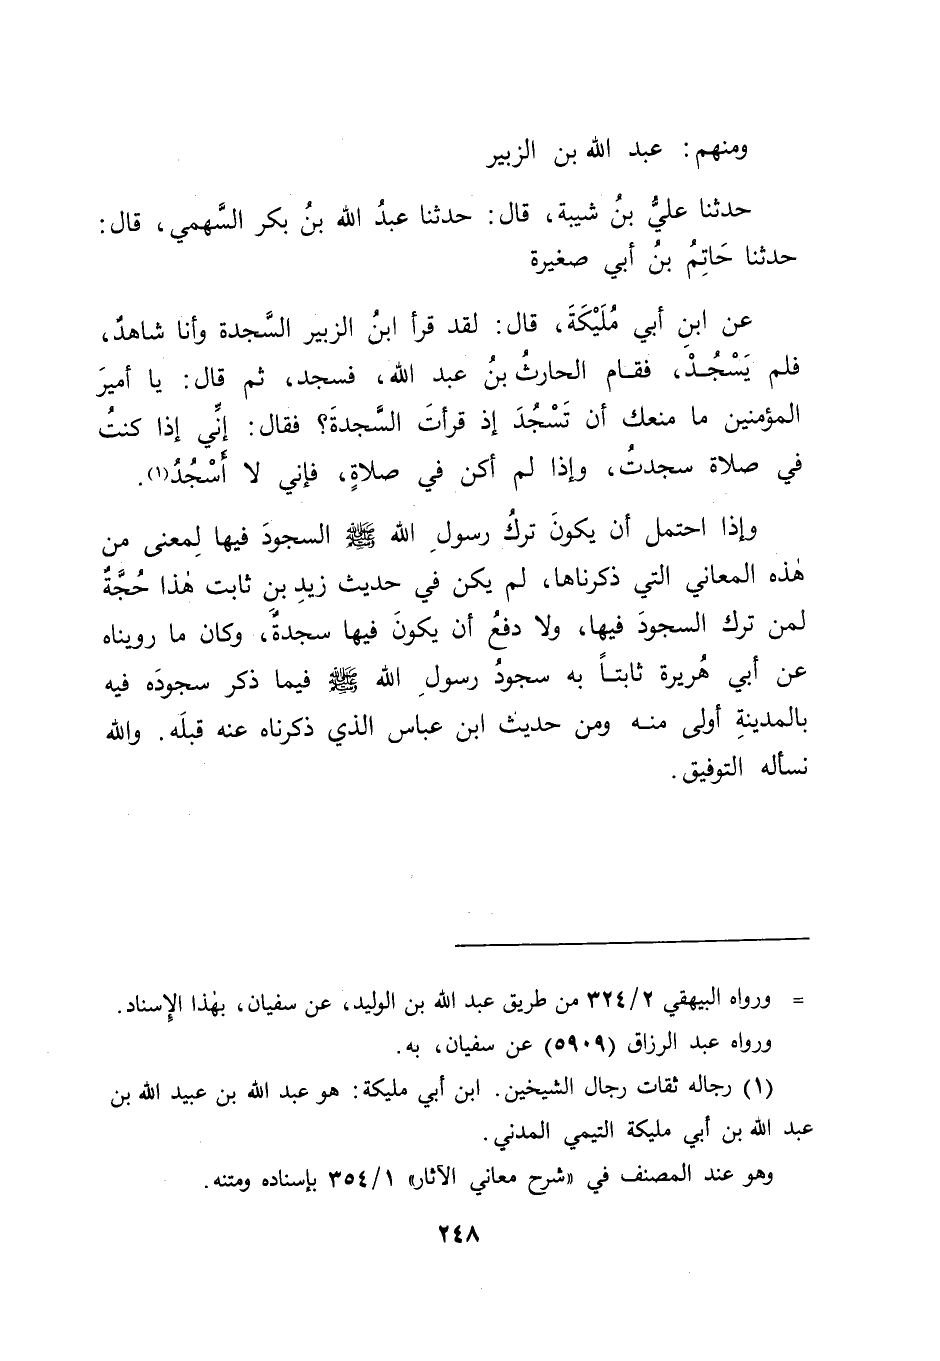 ومنهم: عبد الله بن الزبير
حدثنا عليُّ بنُ شيبة، قال: حدثنا عبدُ الله بنُ بكر السَّهمي، قال:
حدثنا حَاتِمُ بنُ أبي صغيرة
عن ابنِ أبي مُلَيْكَةَ، قال: لقد قرأ ابنُ الزبير السَّجدة وأنا شاهدٌ،
فلم يَسْجُدْ، فقام الحارثُ بنُ عبد الله، فسجد، ثم قال: يا أميرَ
المؤمنين ما منعك أن تَسْجُدَ إذ قرأتَ السَّجدةَ؟ فقال: إنِّي إذا كنتُ
في صلاة سجدتُ، وإذا لم أكن في صلاةٍ، فإني لا أَسْجُدُ(١).
وإذا احتمل أن يكونَ تركُ رسولِ الله ﷺ السجودَ فيها لِمعنى من
هٰذه المعاني التي ذكرناها، لم يكن في حديث زيدِ بنِ ثابت هٰذا حُجَّةٌ
لمن ترك السجودَ فيها، ولا دفعُ أن يكونَ فيها سجدةٌ، وكان ما رويناه
عن أبي هُريرة ثابتاً به سجودُ رسولِ الله ﷺ فيما ذكر سجودَه فيه
بالمدينةِ أولى منه ومن حديث ابن عباس الذي ذكرناه عنه قبلَه. والله
نسأله التوفيق.
= ورواه البيهقي ٣٢٤/٢ من طريق عبد الله بن الوليد، عن سفيان، بهٰذا الإِسناد.
ورواه عبد الرزاق (٥٩٠٩) عن سفيان، به.
(١) رجاله ثقات رجال الشيخين. ابن أبي مليكة: هو عبد الله بن عبيد الله بن
عبد الله بن أبي مليكة التيمي المدني.
وهو عند المصنف في «شرح معاني الآثار» ٣٥٤/١ بإسناده ومتنه.
٢٤٨